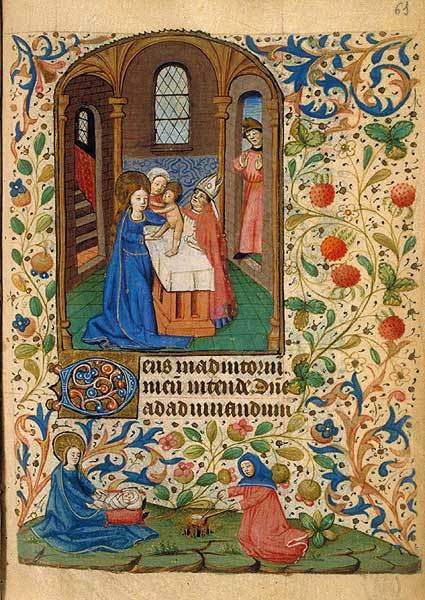 Deus in adiutoriū
meū intende. Dñe
ad adiuuandum